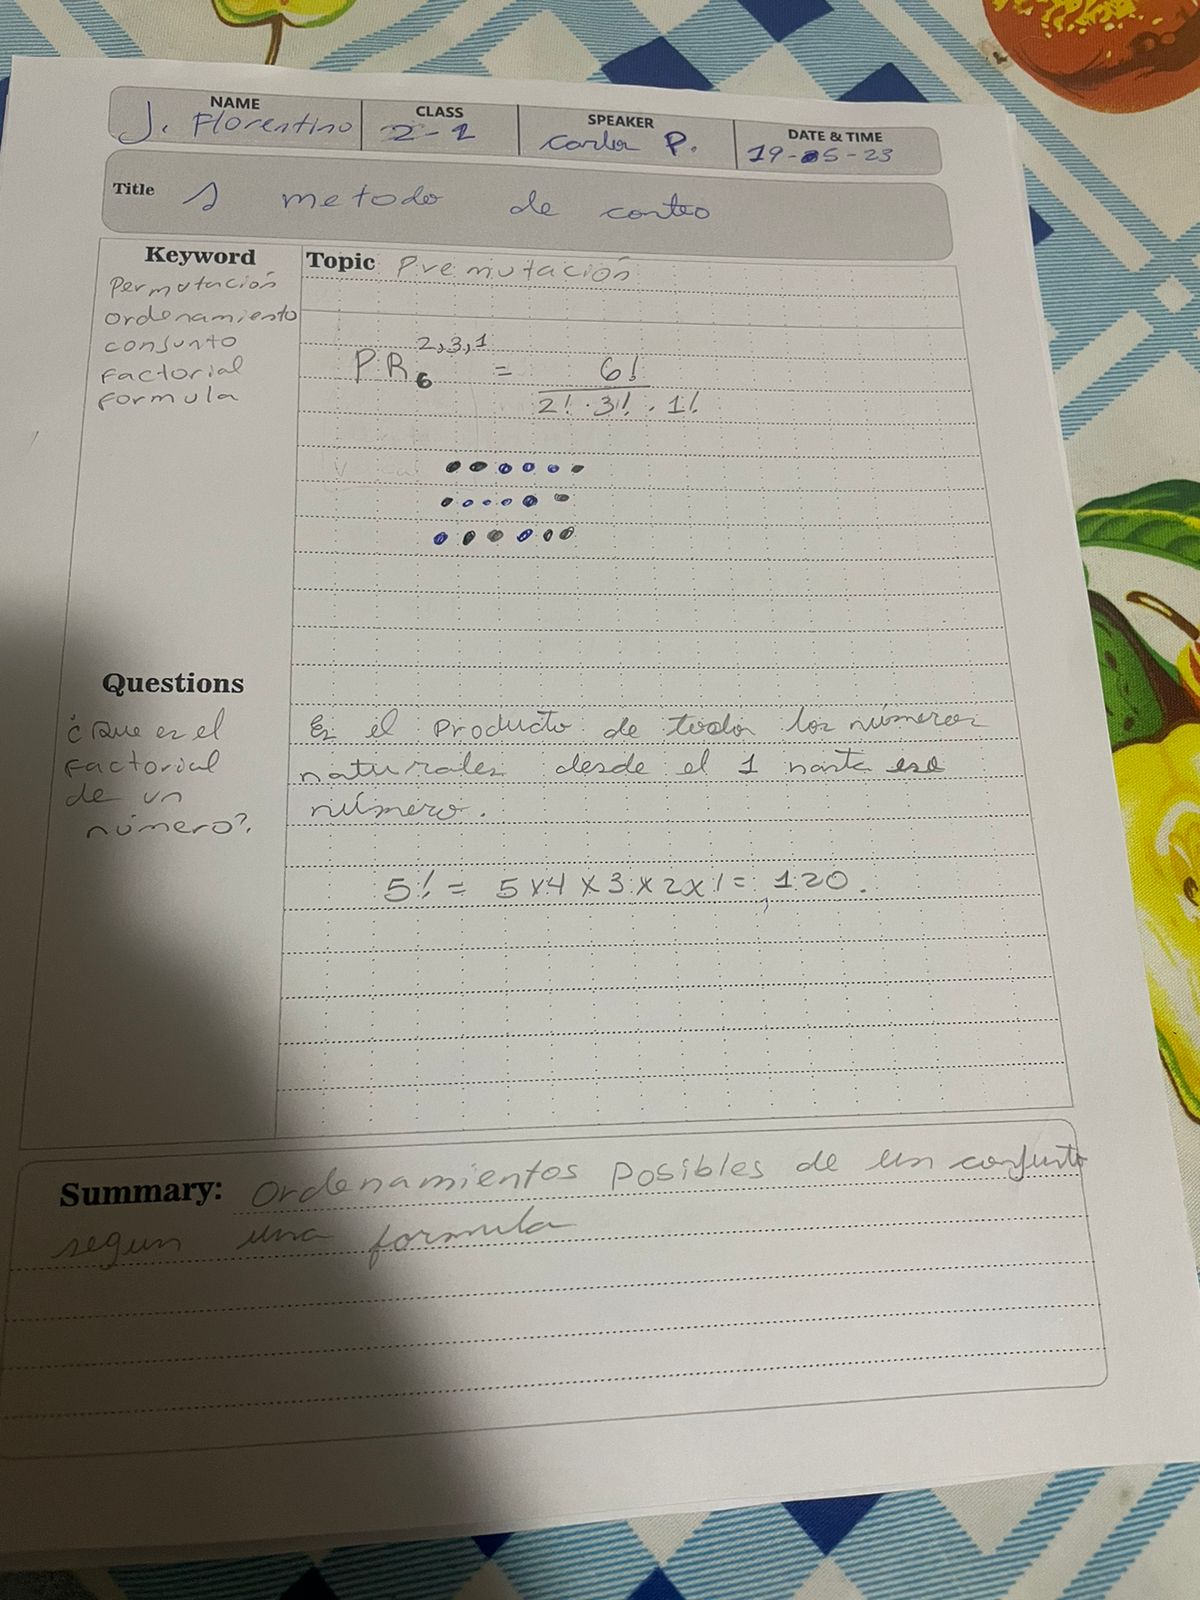 NAME CLASS SPEAKER DATE & TIME
J. Florentino 2-1 Carlos P. 19-05-23
Title metodo de conteo
Keyword
Permutación
ordenamiento
conjunto
Factorial
formula
Topic Premutación
PR₆ 2,3,1 = 6!
2! · 3! · 1!
Questions
¿Que es el
Factorial
de un
número?
Es el producto de todos los números
naturales desde el 1 hasta ese
número.
5! = 5x4x3x2x1 = 120.
Summary: Ordenamientos Posibles de un conjunto
segun una formula